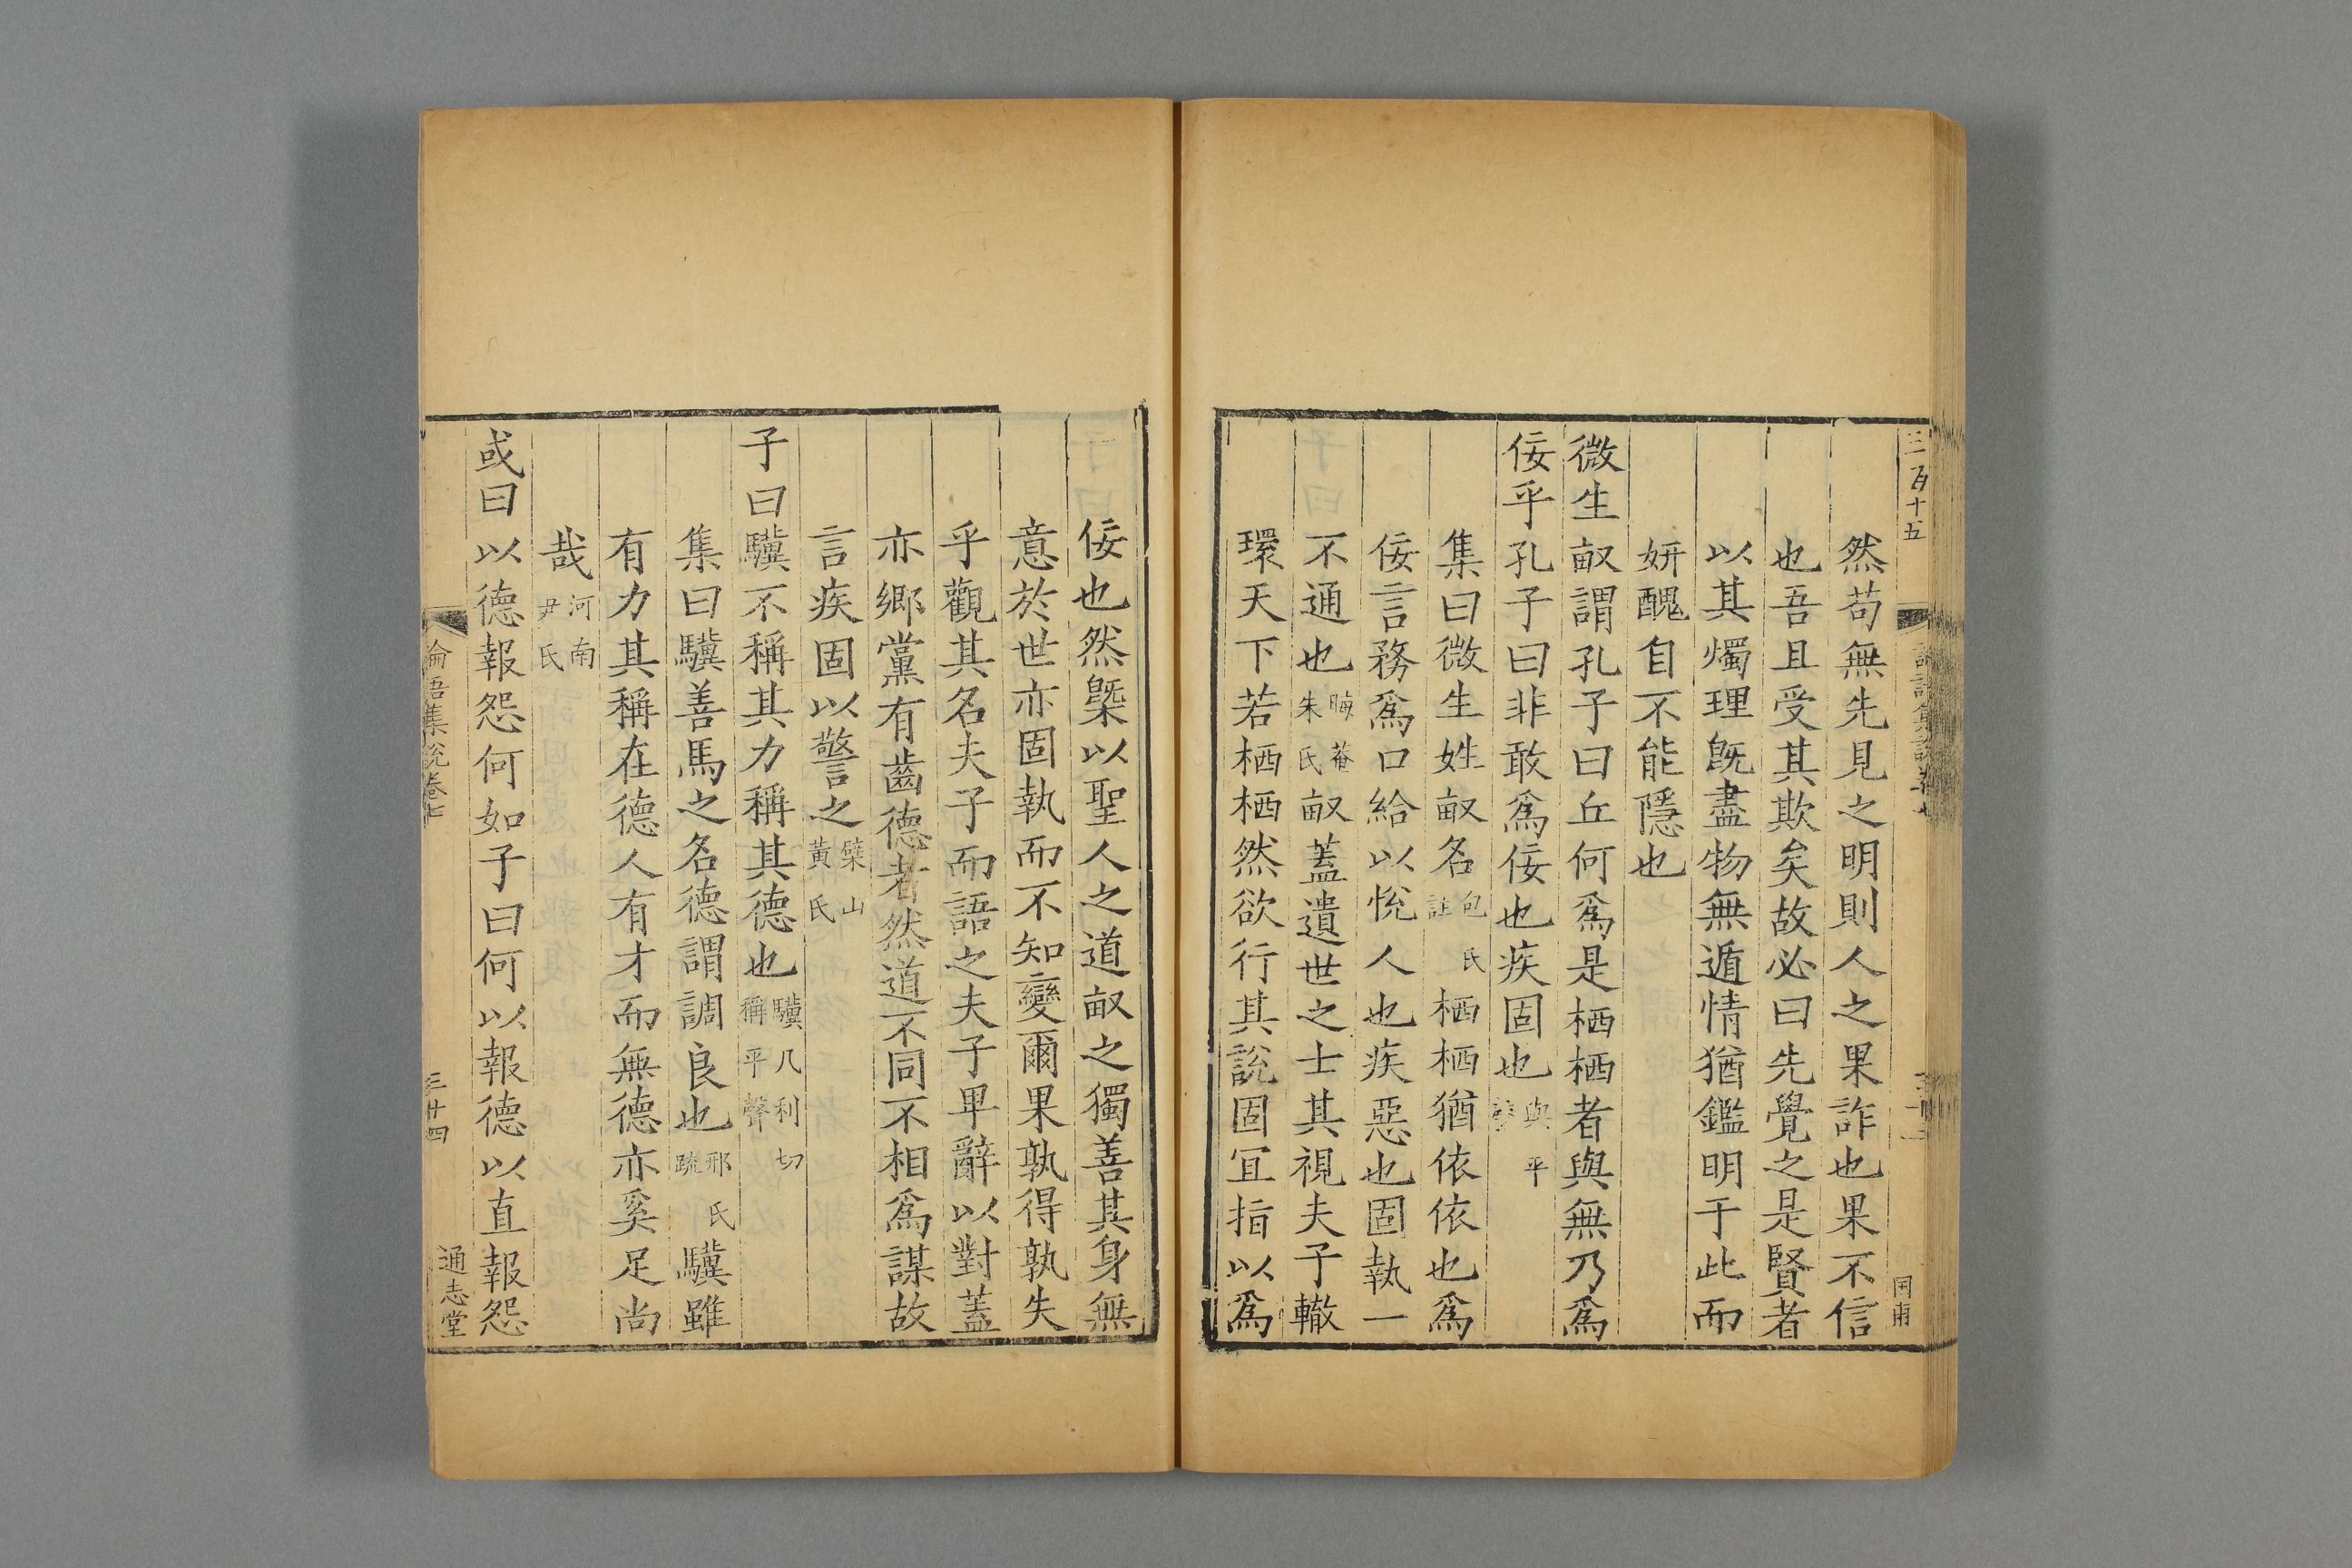 三百十五
然苟無先見之明則人之果詐也果不信
也吾且受其欺矣故必曰先覺之是賢者
以其燭理旣盡物無遁情猶鑑明于此而
妍醜自不能隱也
微生畝謂孔子曰丘何爲是栖栖者與無乃爲
佞乎孔子曰非敢爲佞也疾固也與平聲
集曰微生姓畝名包氏註栖栖猶依依也爲
佞言務爲口給以悅人也疾惡也固執一
不通也晦菴朱氏畝蓋遺世之士其視夫子轍
環天下若栖栖然欲行其說固宜指以爲
佞也然槩以聖人之道畝之獨善其身無
意於世亦固執而不知變爾果孰得孰失
乎觀其名夫子而語之夫子卑辭以對蓋
亦鄉黨有齒德者然道不同不相爲謀故
言疾固以警之檗山黃氏
子曰驥不稱其力稱其德也驥几利切稱平聲
集曰驥善馬之名德謂調良也邢氏疏驥雖
有力其稱在德人有才而無德亦奚足尚
哉河南尹氏
或曰以德報怨何如子曰何以報德以直報怨
論語集說卷七
三十四
通志堂